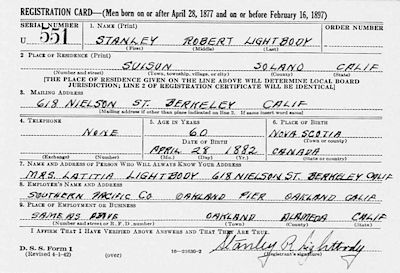 REGISTRATION CARD—(Men born on or after April 28, 1877 and on or before February 16, 1897)
SERIAL NUMBER 1. NAME (Print) ORDER NUMBER
U 551 STANLEY ROBERT LIGHTBODY
(First) (Middle) (Last)
2. PLACE OF RESIDENCE (Print)
SUISUN SOLANO CALIF
(Number and street) (Town, township, village, or city) (County) (State)
[THE PLACE OF RESIDENCE GIVEN ON THE LINE ABOVE WILL DETERMINE LOCAL BOARD
JURISDICTION; LINE 2 OF REGISTRATION CERTIFICATE WILL BE IDENTICAL]
3. MAILING ADDRESS
618 NIELSON ST. BERKELEY CALIF
[Mailing address if other than place indicated on line 2. If same insert word same]
4. TELEPHONE 5. AGE IN YEARS 6. PLACE OF BIRTH
NONE 60 NOVA SCOTIA
DATE OF BIRTH (Town or county)
APRIL 28 1882 CANADA
(Exchange) (Number) (Mo.) (Day) (Yr.) (State or country)
7. NAME AND ADDRESS OF PERSON WHO WILL ALWAYS KNOW YOUR ADDRESS
MRS. LATITIA LIGHTBODY 618 NIELSON ST. BERKELEY CALIF
8. EMPLOYER'S NAME AND ADDRESS
SOUTHERN PACIFIC CO OAKLAND PIER OAKLAND CALIF
9. PLACE OF EMPLOYMENT OR BUSINESS
SAME AS ABOVE OAKLAND ALAMEDA CALIF
(Number and street or R. F. D. number) (Town) (County) (State)
I AFFIRM THAT I HAVE VERIFIED ABOVE ANSWERS AND THAT THEY ARE TRUE.
D. S. S. Form 1
(Revised 4-1-42) (over) 16—21630-2 Stanley R Lightbody
(Registrant's signature)